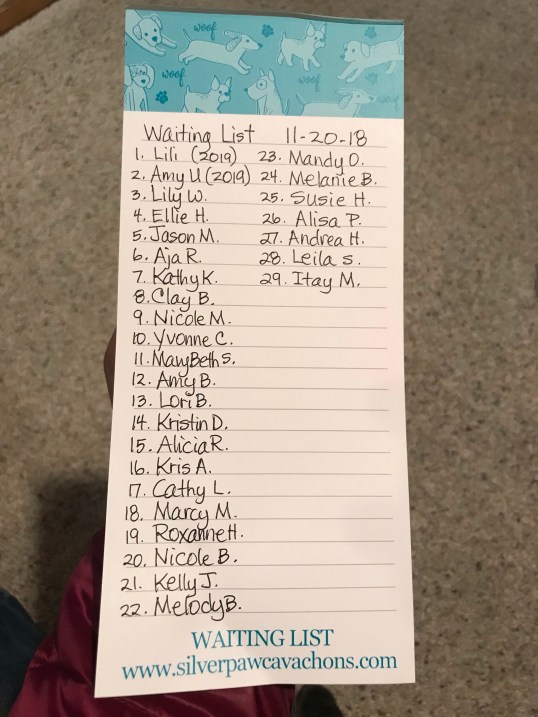 woof
woof
woof
woof
woof
Waiting List 11-20-18
1. Lili (2019) 23. Mandy O.
2. Amy U (2019) 24. Melanie B.
3. Lily W. 25. Susie H.
4. Ellie H. 26. Alisa P.
5. Jason M. 27. Andrea H.
6. Aja R. 28. Leila S.
7. Kathy K. 29. Itay M.
8. Clay B.
9. Nicole M.
10. Yvonne C.
11. MaryBeth S.
12. Amy B.
13. Lori B.
14. Kristin D.
15. Alicia R.
16. Kris A.
17. Cathy L.
18. Marcy M.
19. Roxanne H.
20. Nicole B.
21. Kelly J.
22. Melody B.
WAITING LIST
www.silverpawcavachons.com